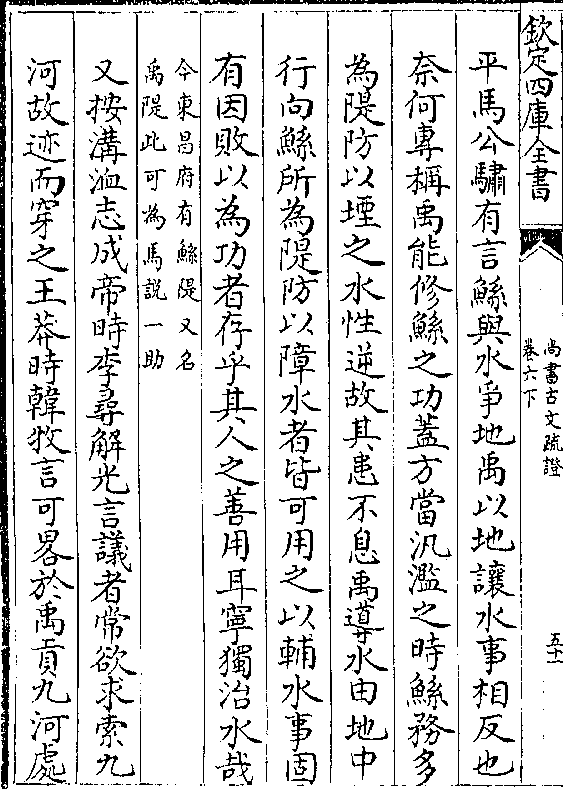 欽定四庫全書
尚書古文疏證
卷六下
五十一
平馬公驌有言鯀與水爭地禹以地讓水事相反也
奈何專稱禹能修鯀之功蓋方當汎濫之時鯀務多
為隄防以堙之水性逆故其患不息禹導水由地中
行向鯀所為隄防以障水者皆可用之以輔水事固
有因敗以為功者存乎其人之善用耳寧獨治水哉
今東昌府有鯀隄又名
禹隄此可為馬說一助
又按溝洫志成帝時李尋解光言議者常欲求索九
河故迹而穿之王莽時韓牧言可畧於禹貢九河處